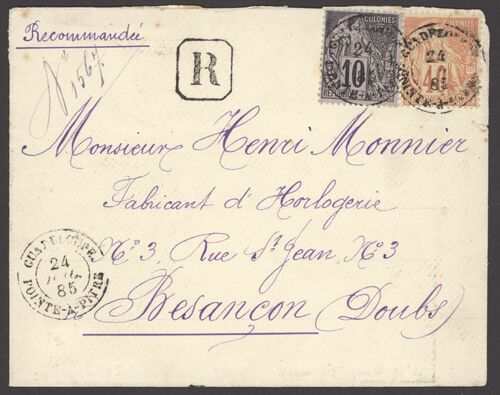 Recommandée
N° 1567
R
COLONIES
10
COLONIES
40
24
85
POINTE-A-PITRE
Monsieur Henri Monnier
Fabricant d'Horlogerie
N° 3, Rue St Jean, N° 3
Besançon (Doubs)
GUADELOUPE
24
85
POINTE-A-PITRE